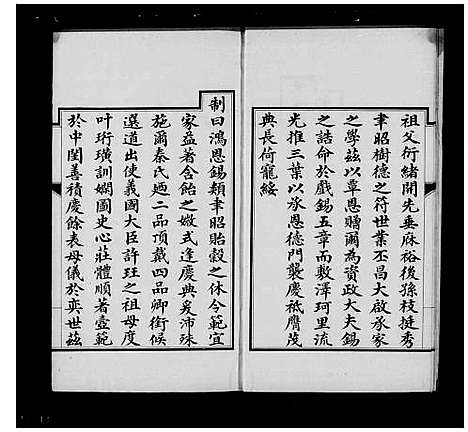 祖父衍緒開先垂麻裕後孫枝挺秀
聿昭樹德之符世業丕昌大啟承家
之學茲以覃恩贈爾為資政大夫錫
之誥命於戲錫五章而敷澤珂里流
光推三葉以承恩德門襲慶祇膺茂
典長荷寵綏
制曰鴻恩錫類聿昭貽穀之休令範宜
家益著含飴之媺式逢慶典爰沛殊
施爾秦氏迺二品頂戴四品卿銜候
選道出使義國大臣許珏之祖母度
叶珩璜訓嫻圖史心莊體順著壼範
於中閨善積慶餘表母儀於奕世茲